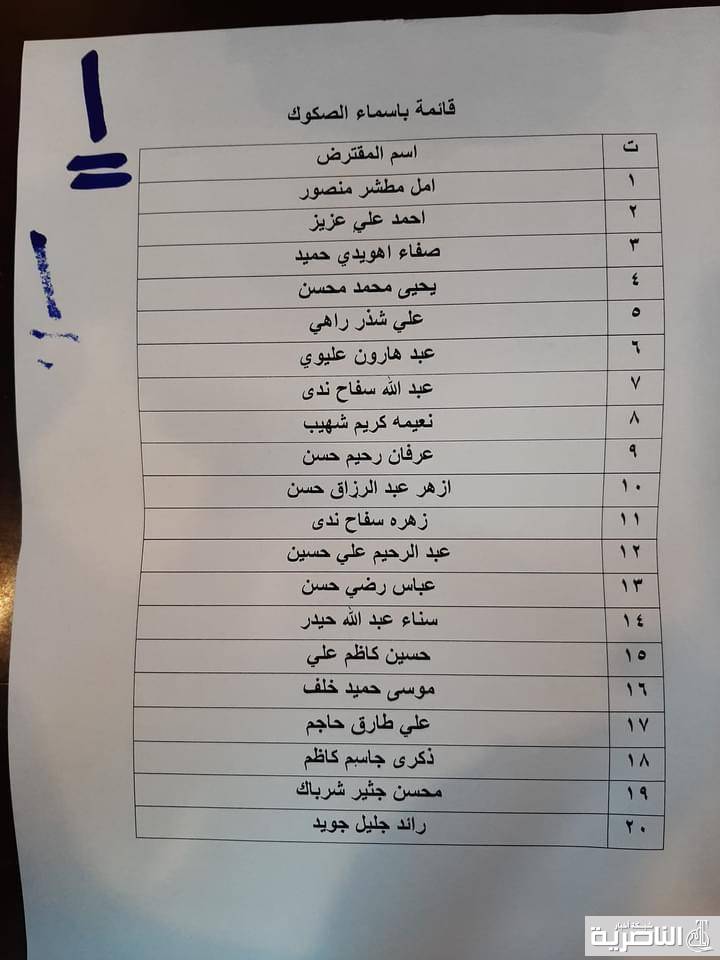 1
قائمة باسماء الصكوك
ت اسم المقترض
١ امل مطشر منصور
٢ احمد علي عزيز
٣ صفاء اهويدي حميد
٤ يحيى محمد محسن
٥ علي شذر راهي
٦ عبد هارون عليوي
٧ عبد الله سفاح ندى
٨ نعيمه كريم شهيب
٩ عرفان رحيم حسن
١٠ ازهر عبد الرزاق حسن
١١ زهره سفاح ندى
١٢ عبد الرحيم علي حسين
١٣ عباس رضي حسن
١٤ سناء عبد الله حيدر
١٥ حسين كاظم علي
١٦ موسى حميد خلف
١٧ علي طارق حاجم
١٨ ذكرى جاسم كاظم
١٩ محسن جثير شرباك
٢٠ رائد جليل جويد
شبكة أخبار
الناصرية